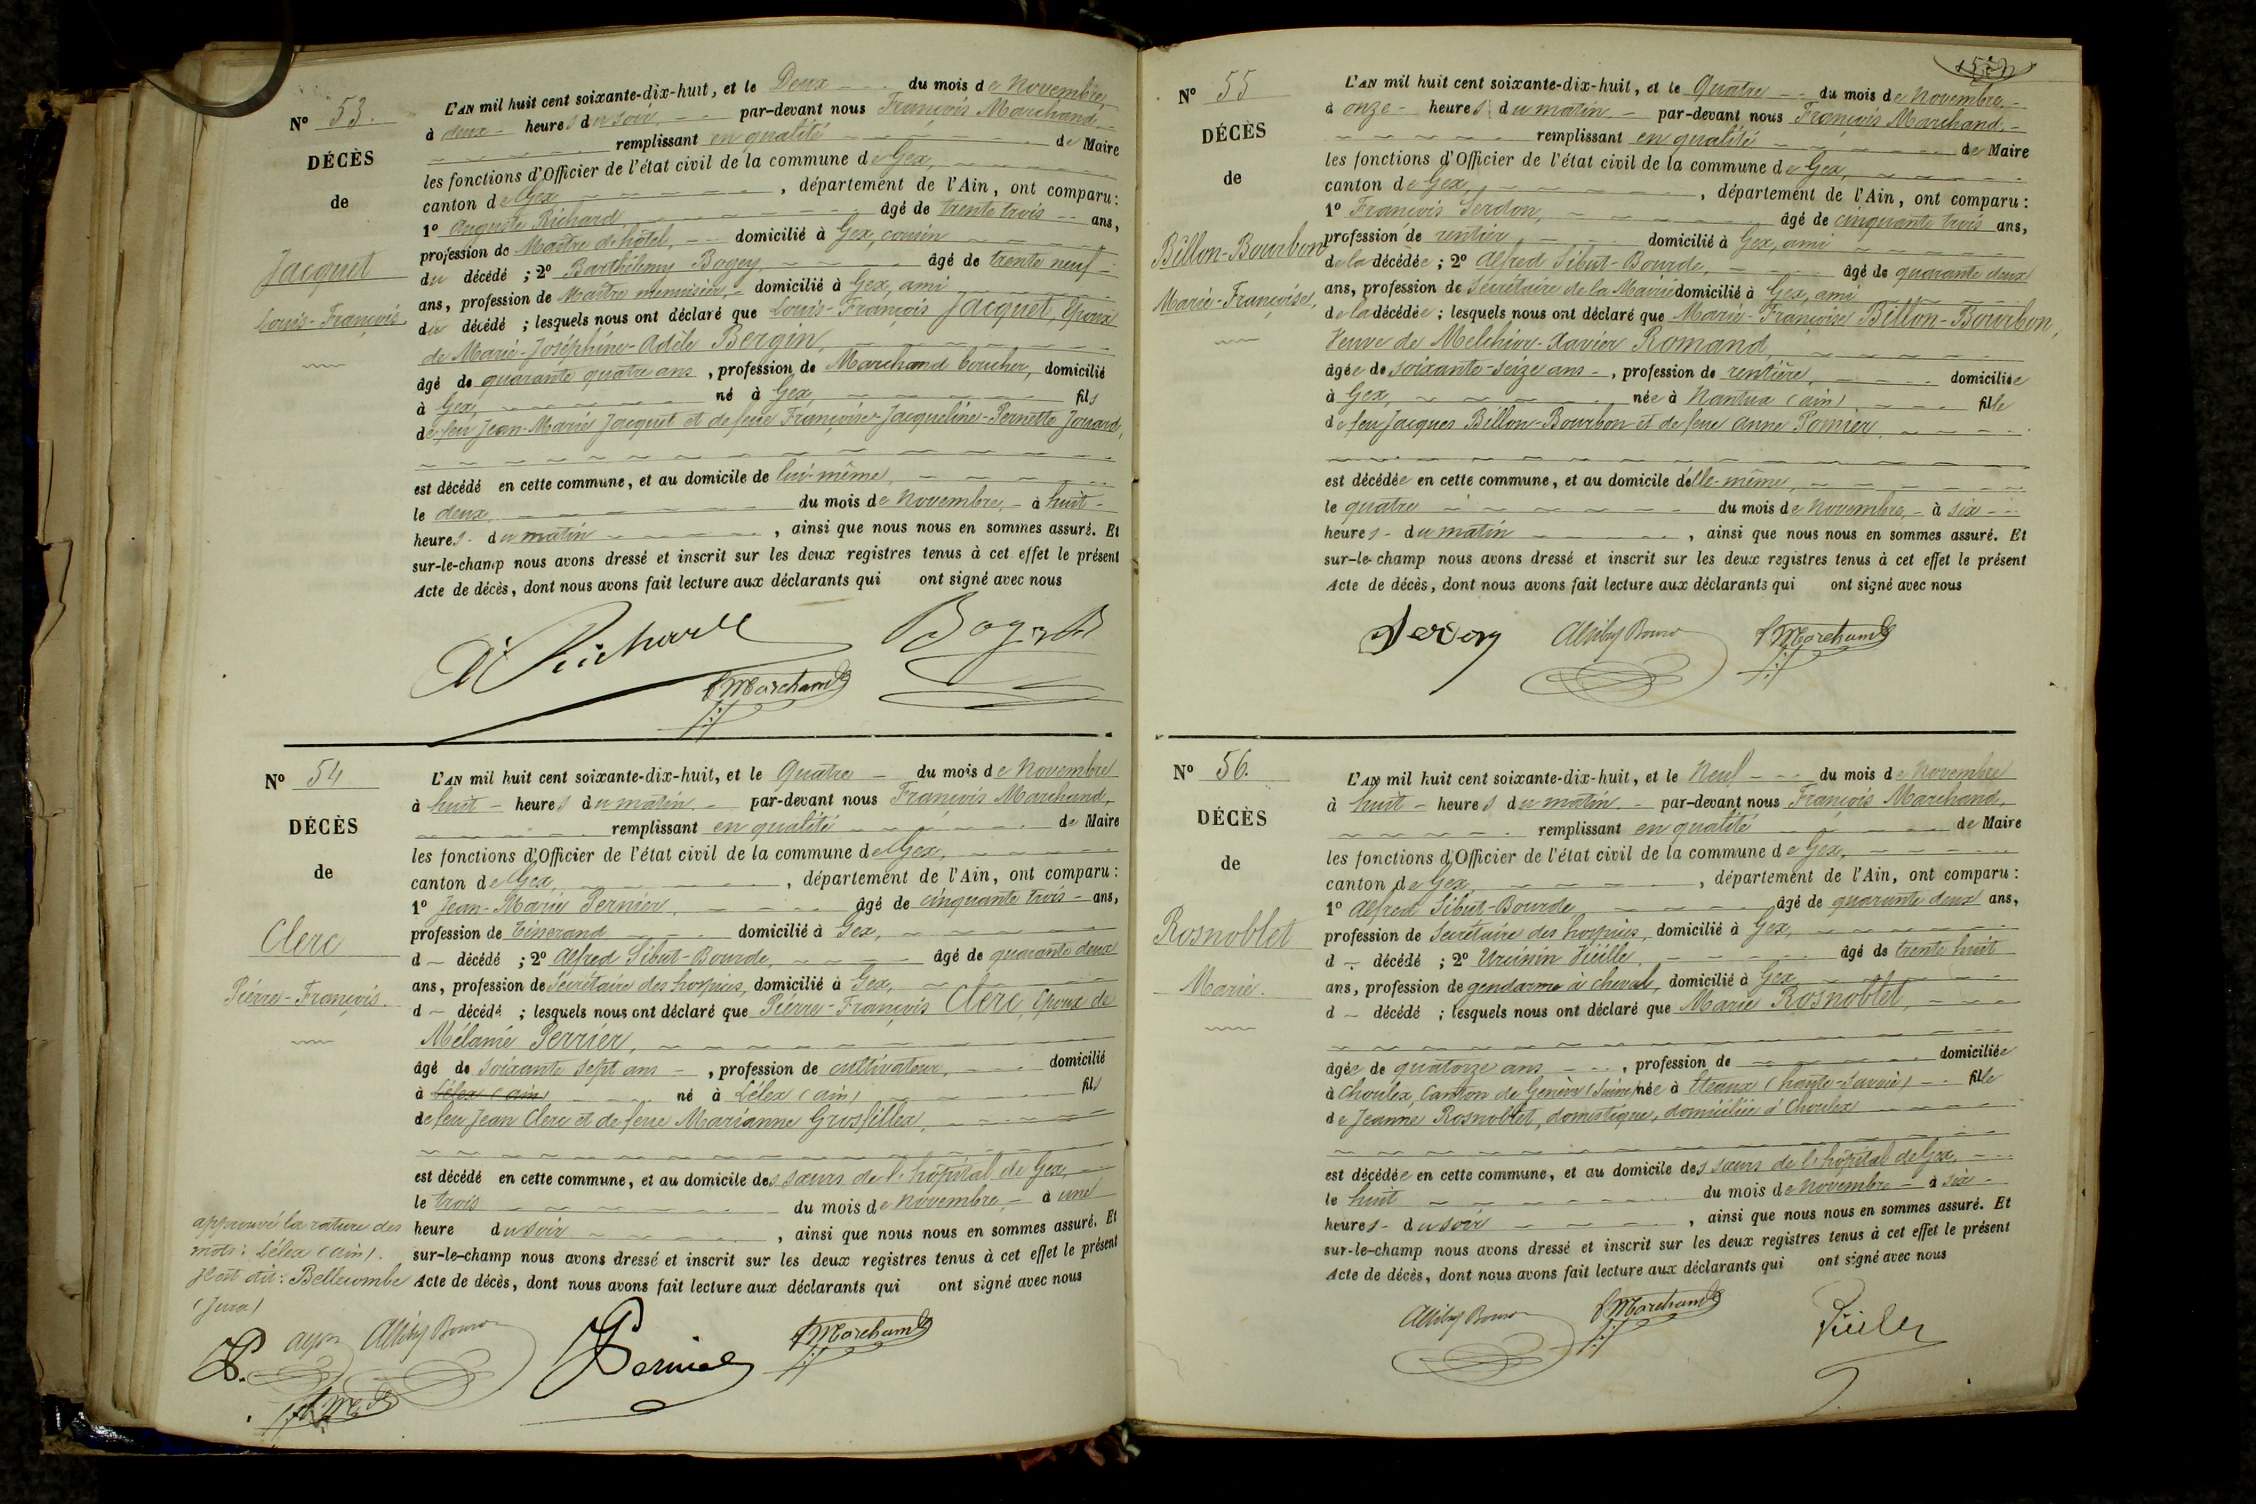 N° 53.
DÉCÈS
de
Jacquet
Louis-François
L'AN mil huit cent soixante-dix-huit, et le Deux du mois de Novembre,
à deux heures du soir, par-devant nous François Marchand,
remplissant en qualité de Maire
les fonctions d'Officier de l'état civil de la commune de Gex,
canton de Gex, département de l'Ain, ont comparu :
1° Auguste Richard, âgé de trente trois ans,
profession de Maître d'hôtel, domicilié à Gex, cousin
du décédé ; 2° Barthélemy Bogey, âgé de trente neuf
ans, profession de Maître menuisier, domicilié à Gex, ami
du décédé ; lesquels nous ont déclaré que Louis-François Jacquet, Epoux
de Marie-Joséphine-Adèle Bergin,
âgé de quarante quatre ans, profession de Marchand boucher, domicilié
à Gex, né à Gex, fils
de feu Jean-Marie Jacquet et de feue Françoise-Jacqueline-Pernette Jouard,
est décédé en cette commune, et au domicile de lui-même,
le deux du mois de Novembre, à huit
heures du matin, ainsi que nous nous en sommes assuré. Et
sur-le-champ nous avons dressé et inscrit sur les deux registres tenus à cet effet le présent
Acte de décès, dont nous avons fait lecture aux déclarants qui ont signé avec nous
A Richard Bogey
F Marchand
N° 54
DÉCÈS
de
Clerc
Pierre-François.
L'AN mil huit cent soixante-dix-huit, et le Quatre du mois de Novembre
à huit heures du matin par-devant nous François Marchand,
remplissant en qualité de Maire
les fonctions d'Officier de l'état civil de la commune de Gex,
canton de Gex, département de l'Ain, ont comparu :
1° Jean-Marie Pernier, âgé de cinquante trois ans,
profession de Tisserand domicilié à Gex,
d décédé ; 2° Alfred Sibut-Bourde, âgé de quarante deux
ans, profession de Secrétaire des hospices, domicilié à Gex,
d décédé ; lesquels nous ont déclaré que Pierre-François Clerc, Epoux de
Mélanie Perrier,
âgé de soixante sept ans, profession de cultivateur, domicilié
à Lélex (ain) né à Lélex (ain) fils
de feu Jean Clerc et de feue Marianne Grosfillex,
est décédé en cette commune, et au domicile des sœurs de l'hôpital de Gex,
le trois du mois de Novembre, à une
heure du soir, ainsi que nous nous en sommes assuré. Et
sur-le-champ nous avons dressé et inscrit sur les deux registres tenus à cet effet le présent
Acte de décès, dont nous avons fait lecture aux déclarants qui ont signé avec nous
approuvé la rature des
mots : Lélex (ain).
Il est dit : Bellecombe
(Jura)
Pernier
F Marchand
N° 55
DÉCÈS
de
Billon-Bourbon
Marie-Françoise,
L'AN mil huit cent soixante-dix-huit, et le Quatre du mois de Novembre,
à onze heures du matin par-devant nous François Marchand,
remplissant en qualité de Maire
les fonctions d'Officier de l'état civil de la commune de Gex,
canton de Gex, département de l'Ain, ont comparu :
1° François Serdon, âgé de cinquante trois ans,
profession de rentier domicilié à Gex, ami
de la décédée ; 2° Alfred Sibut-Bourde, âgé de quarante deux
ans, profession de Secrétaire de la Mairie domicilié à Gex, ami
de la décédée ; lesquels nous ont déclaré que Marie-Françoise Billon-Bourbon,
Veuve de Melchior-Xavier Romand,
âgée de soixante-seize ans, profession de rentière, domiciliée
à Gex, née à Nantua (ain) fille
de feu Jacques Billon-Bourbon et de feue Anne Pomier,
est décédée en cette commune, et au domicile d'elle-même,
le quatre du mois de Novembre, à six
heures du matin, ainsi que nous nous en sommes assuré. Et
sur-le-champ nous avons dressé et inscrit sur les deux registres tenus à cet effet le présent
Acte de décès, dont nous avons fait lecture aux déclarants qui ont signé avec nous
F Marchand
N° 56.
DÉCÈS
de
Rosnoblet
Marie.
L'AN mil huit cent soixante-dix-huit, et le Neuf du mois de Novembre
à huit heures du matin par-devant nous François Marchand,
remplissant en qualité de Maire
les fonctions d'Officier de l'état civil de la commune de Gex,
canton de Gex, département de l'Ain, ont comparu :
1° Alfred Sibut-Bourde âgé de quarante deux ans,
profession de Secrétaire des hospices, domicilié à Gex,
d décédé ; 2° Ursinin Vieille, âgé de trente huit
ans, profession de gendarme à cheval, domicilié à Gex
d décédé ; lesquels nous ont déclaré que Marie Rosnoblet,
âgée de quatorze ans, profession de domiciliée
à Choulex, Canton de Genève (Suisse) née à Eteaux (haute-Savoie) fille
de Jeanne Rosnoblet, domestique, domiciliée à Choulex
est décédée en cette commune, et au domicile des sœurs de l'hôpital de Gex,
le huit du mois de Novembre à six
heures du soir, ainsi que nous nous en sommes assuré. Et
sur-le-champ nous avons dressé et inscrit sur les deux registres tenus à cet effet le présent
Acte de décès, dont nous avons fait lecture aux déclarants qui ont signé avec nous
F Marchand